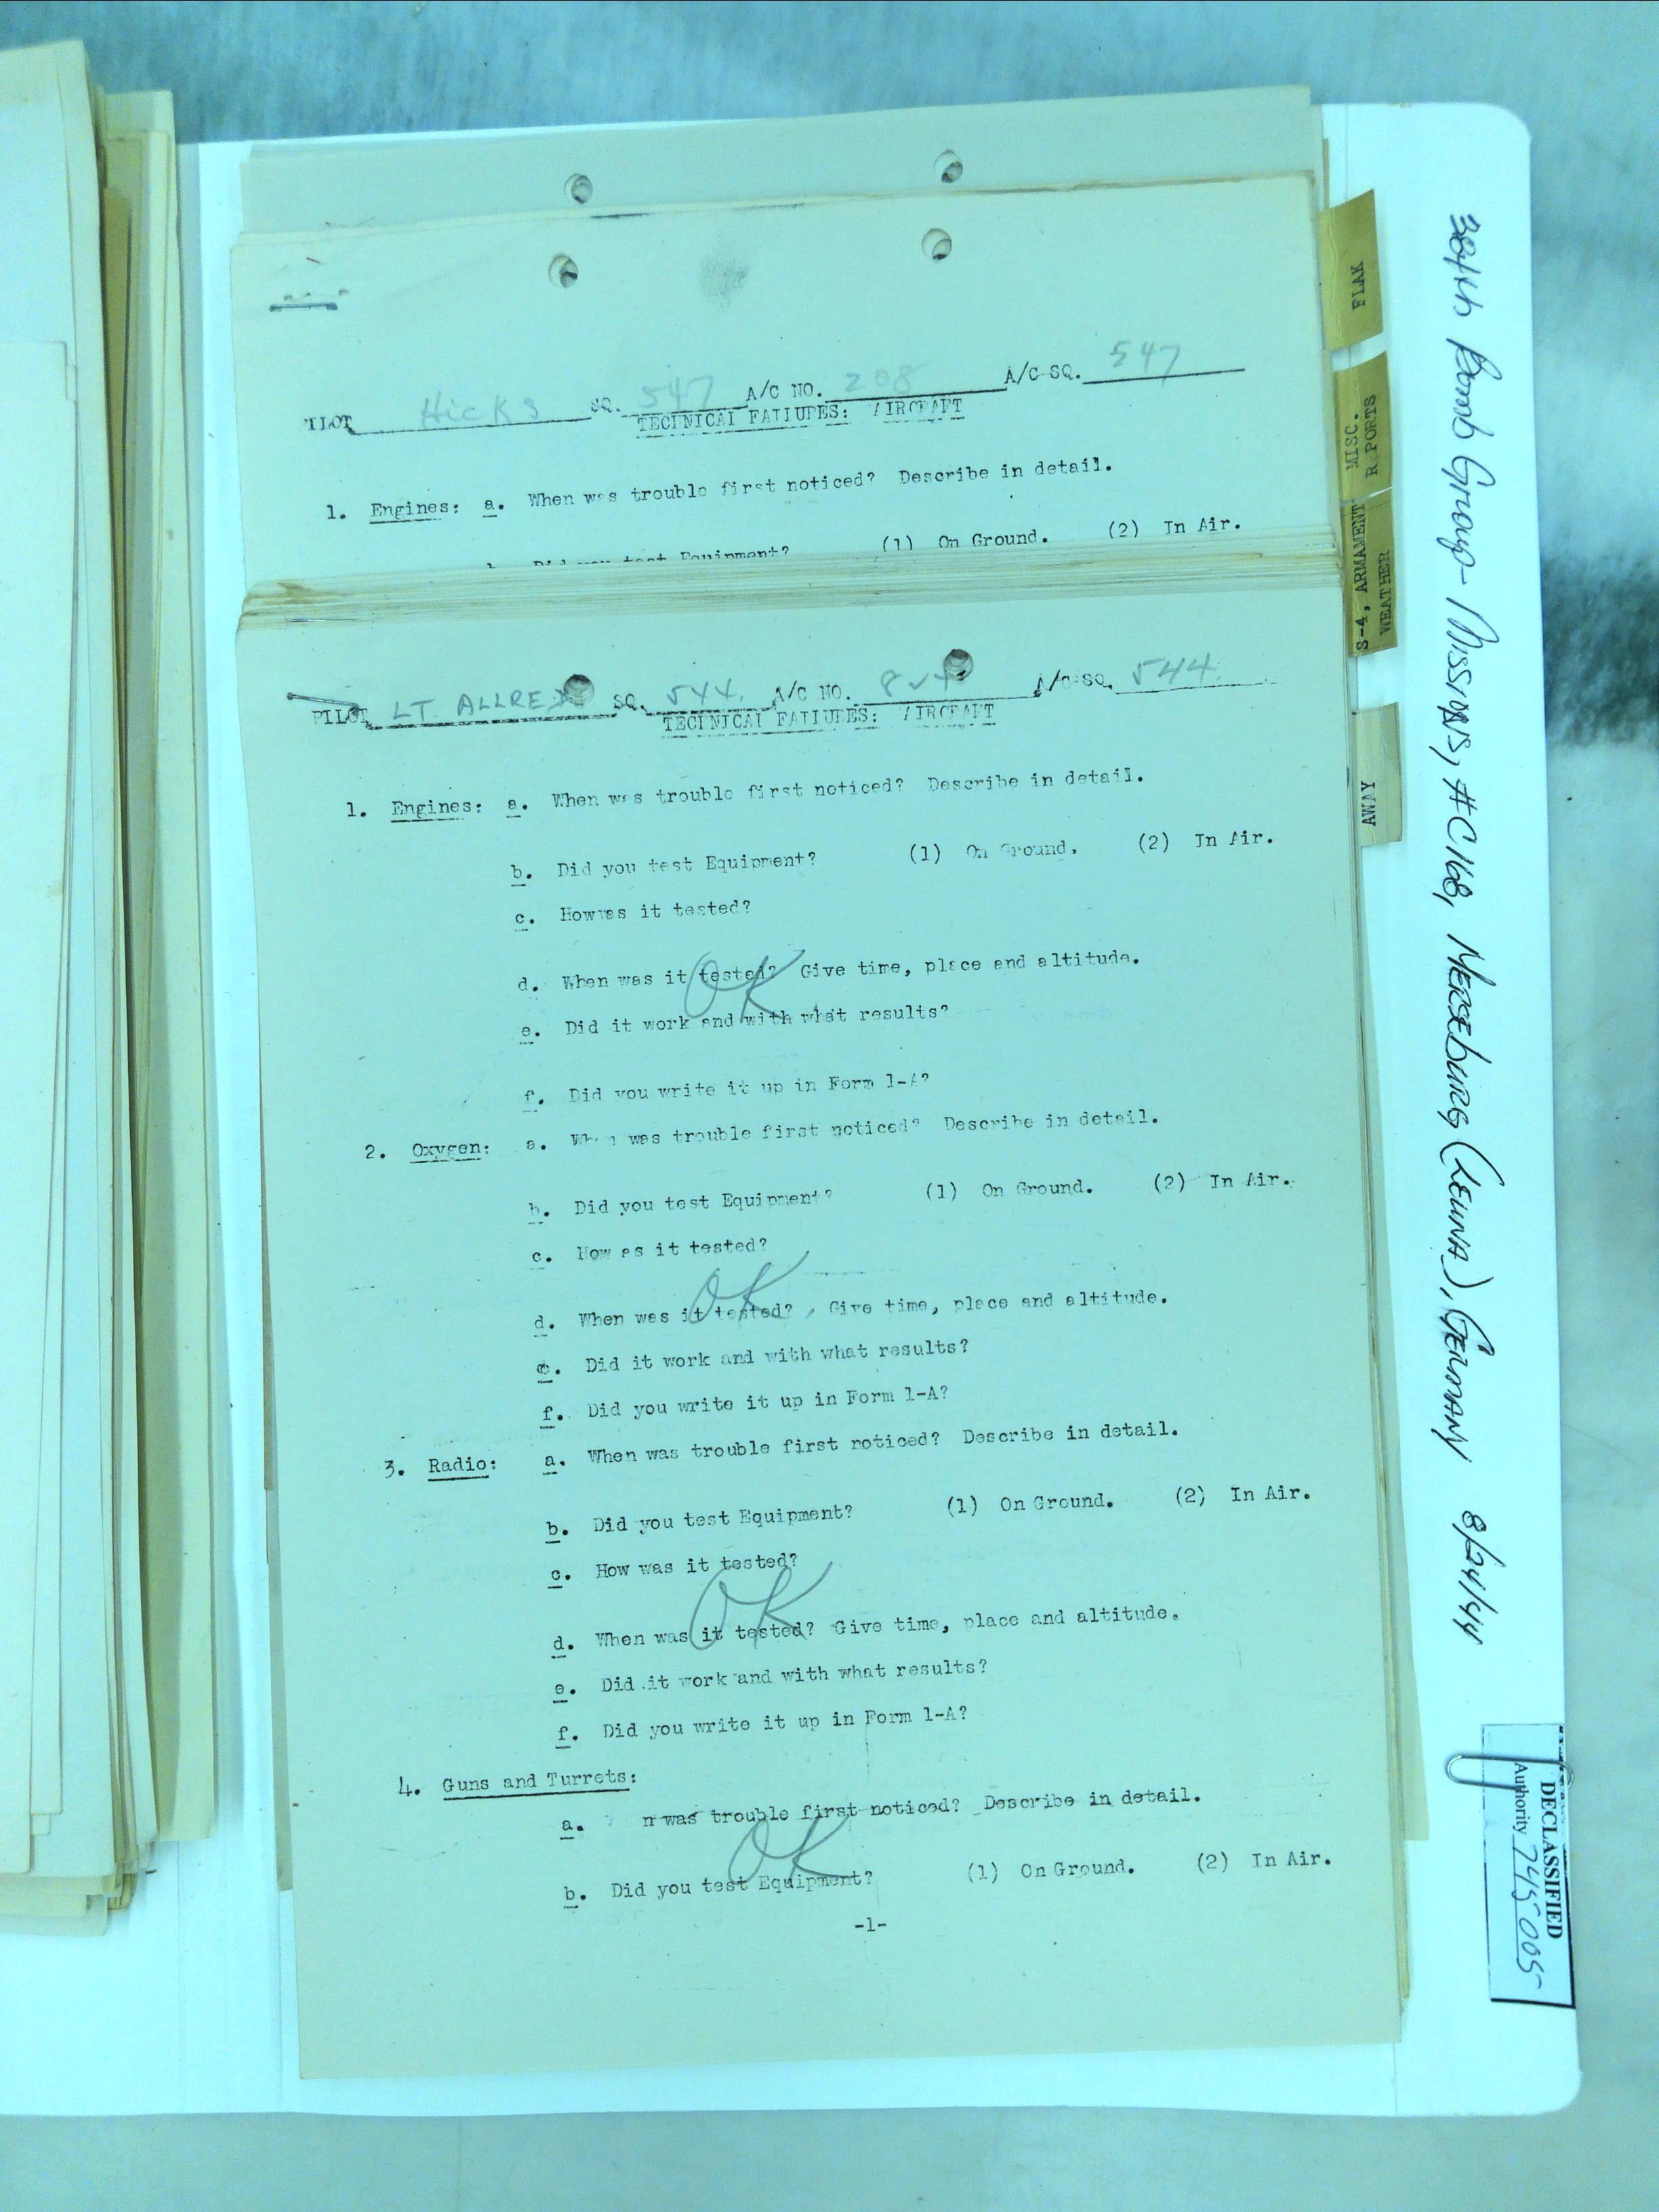 Hicks SQ. 547 A/C NO. 208 A/C SQ. 547
TECHNICAL FAILURES: AIRCRAFT
1. Engines: a. When was trouble first noticed? Describe in detail.
Did you test Equipment? (1) On Ground. (2) In Air.
PILOT LT ALLRED SQ. 544. A/C NO. A/C SQ. 544.
TECHNICAL FAILURES: AIRCRAFT
1. Engines: a. When was trouble first noticed? Describe in detail.
b. Did you test Equipment? (1) On Ground. (2) In Air.
c. How was it tested?
d. When was it tested? Give time, place and altitude.
OK
e. Did it work and with what results?
f. Did you write it up in Form 1-A?
2. Oxygen: a. When was trouble first noticed? Describe in detail.
b. Did you test Equipment? (1) On Ground. (2) In Air.
c. How as it tested?
OK
d. When was it tested? Give time, place and altitude.
e. Did it work and with what results?
f. Did you write it up in Form 1-A?
3. Radio: a. When was trouble first noticed? Describe in detail.
b. Did you test Equipment? (1) On Ground. (2) In Air.
c. How was it tested?
OK
d. When was it tested? Give time, place and altitude.
e. Did it work and with what results?
f. Did you write it up in Form 1-A?
4. Guns and Turrets:
a. n was trouble first noticed? Describe in detail.
OK
b. Did you test Equipment? (1) On Ground. (2) In Air.
-1-
FLAK
MISC. R PORTS
S-4, ARMAMENT
WEATHER
AWAY
384th Bomb Group - Missions, #C168, Merseburg (Leuna), Germany 8/24/44
DECLASSIFIED
Authority 745005